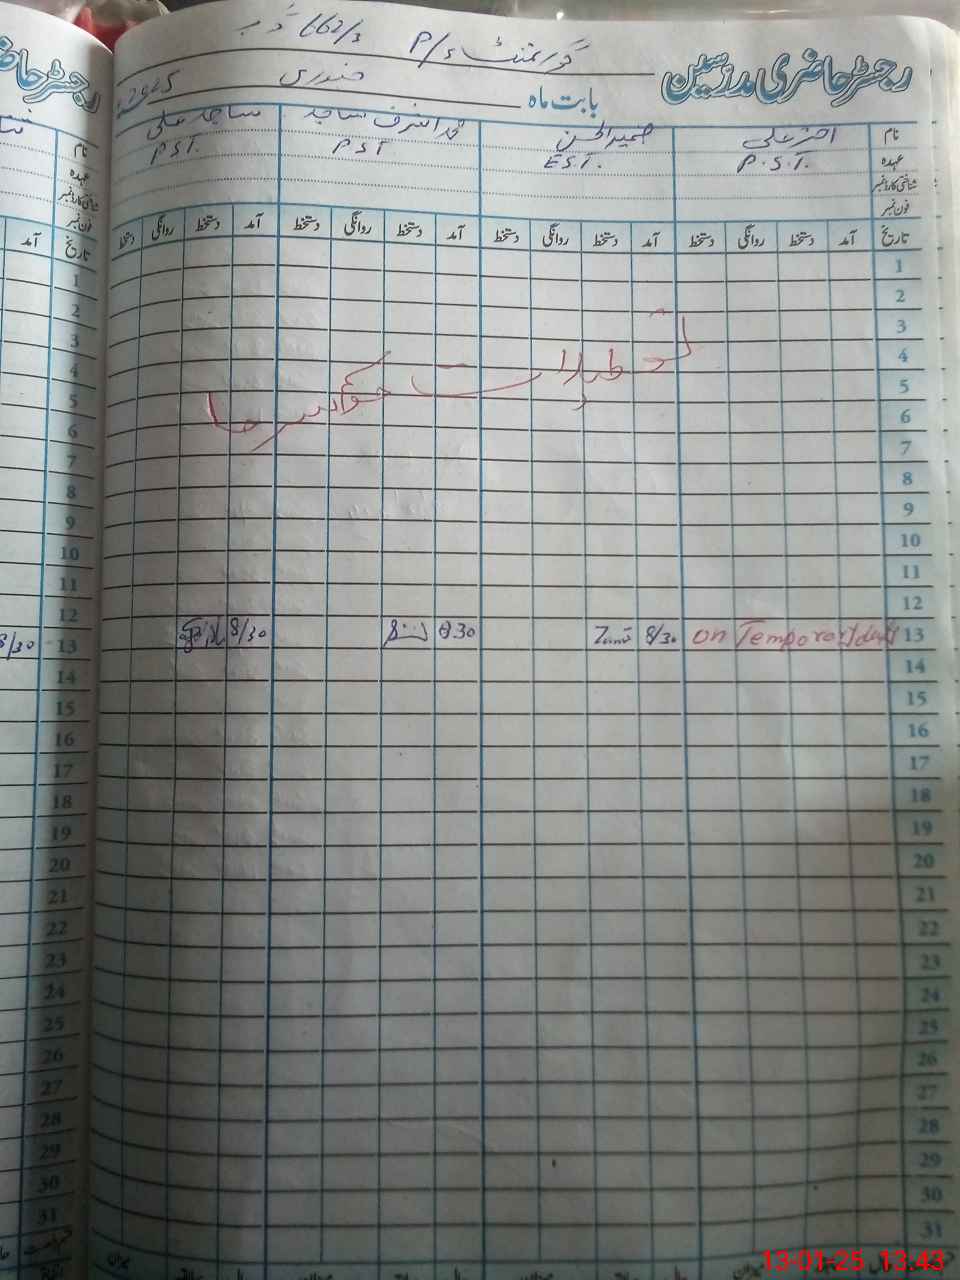 رجسٹر حاضری مدرسین گورنمنٹ P/S 662/3 گ ب
بابت ماہ جنوری 2025
نام اختر علی ضمیر الحسن محمد اشرف ساجد ساجد علی
عہدہ P.S.T. E.S.T. PST PST.
شناختی کارڈ نمبر
فون نمبر
تاریخ آمد دستخط روانگی دستخط آمد دستخط روانگی دستخط آمد دستخط روانگی دستخط آمد دستخط روانگی دستخط
1
2
3
4
5
6
7
8
9
10
11
12
13 on Temporary duty 8/30 830 8/30
14
15
16
17
18
19
20
21
22
23
24
25
26
27
28
29
30
31
تعطیلات موسم سرما
رجسٹر حاضری
نام
عہدہ
شناختی کارڈ نمبر
فون نمبر
تاریخ آمد
1
2
3
4
5
6
7
8
9
10
11
12
13 8/30
14
15
16
17
18
19
20
21
22
23
24
25
26
27
28
29
30
31
13-01-25 13:43